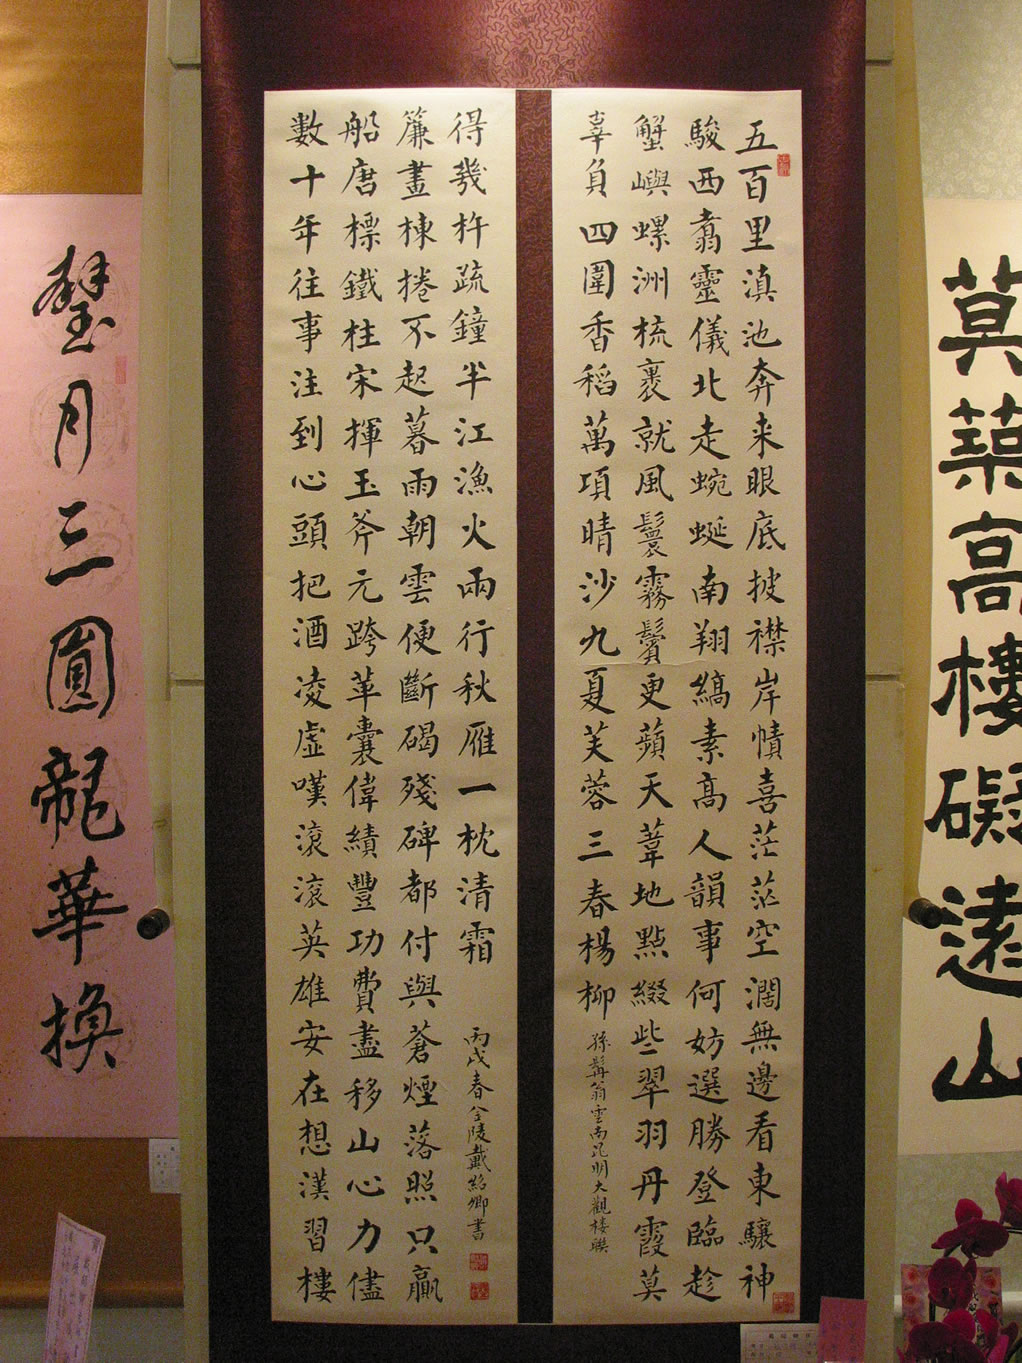 莫築高樓礙遠山
五百里滇池奔来眼底披襟岸幘喜茫茫空濶無邊看東驤神
駿西翥靈儀北走蜿蜒南翔縞素高人韻事何妨選勝登臨趁
蟹嶼螺洲梳裹就風鬟霧鬢更蘋天葦地點綴些翠羽丹霞莫
辜負四圍香稻萬項晴沙九夏芙蓉三春楊柳
孫髯翁雲南昆明大觀樓聯
數十年往事注到心頭把酒凌虛嘆滾滾英雄安在想漢習樓
船唐標鐵柱宋揮玉斧元跨革囊偉績豐功費盡移山心力儘
簾畫棟捲不起暮雨朝雲便斷碣殘碑都付與蒼煙落照只贏
得幾杵疏鐘半江漁火兩行秋雁一枕清霜
丙戌春金陵戴紹卿書
璧月三圓龍華換